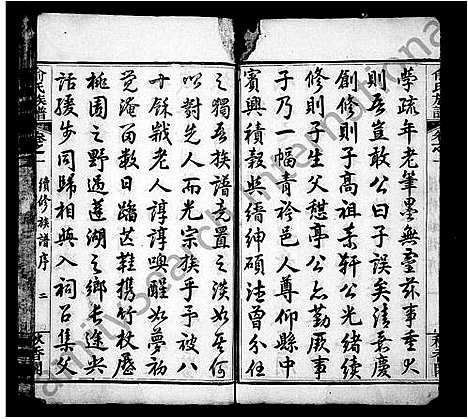 學疏年老筆墨無靈茲事重大
則吾豈敢公曰子誤矣清嘉慶
創修則子高祖東軒公光緒續
修則子生父憇亭公亦勤厥事
子乃一幅青衿邑人尊仰縣中
賓興積穀與縉紳碩法曾分任
之獨吾族譜竟置之淡如其何
以對先人而光宗族乎予被八
十餘歲老人諄諄喚醒如夢初
覺淹留數日躡芒鞋携竹杖歷
桃園之野過蓮湖之鄉長途共
話緩步同歸相與入祠召集父
俞氏族譜
卷之一
續修族譜序
二
俞氏族譜
卷之一
FamilySearch International